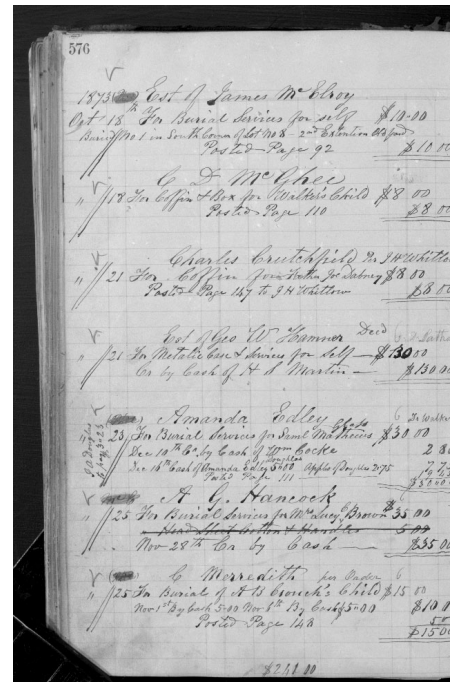 576
1873 Est Of James McElroy
Oct 18th For Burial Services for self $10.00
Buried No 1 in South Corner of Lot No 8 2nd Extention Old
Posted Page 92 $10 00
C D McGhee
" 18 For Coffin & Box for Walker's Child $8 00
Posted Page 110 $8 00
Charles Crutchfield Per J H Whitlow
" 21 For Coffin for Joe Dabney $8 00
Posted Page 147 to J H Whitlow $8 00
Est of Geo W Hamner Decd
" 21 For Metalic Case & Services for self $130 00
Cr by Cash of H S Martin $130 00
Amanda Edley
" 23 For Burial Services for Saml Mathews $30 00
Dec 10th Cr, by Cash of Cocke
Dec 16th Cash of Amanda Edley 5.00 2.75
Page 111
A G. Hancock
" 25 For Burial Services for Mrs Lucy Brown $35 00
Head Cotton & Handles 5.00
Nov 28th Cr by Cash $35 00
C Merredith
" 25 For Burial of A B Crouch's Child $15 00
Nov 1st By Cash 5.00 Nov 8th By Cash $5.00 $10 0
Posted Page 148
$15 00
$241 00